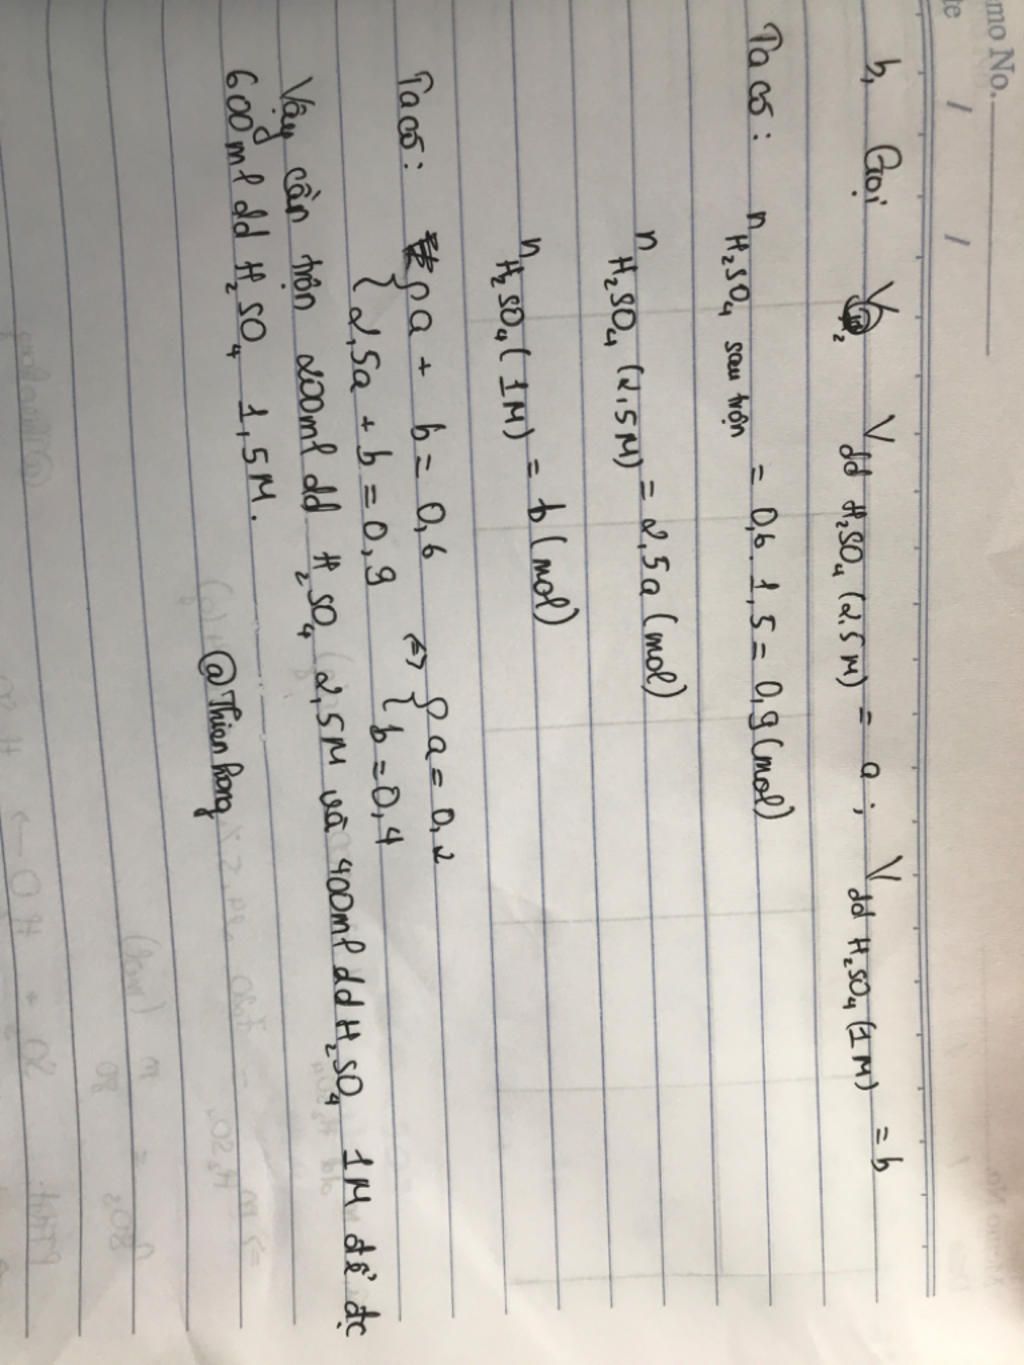 mo No.
te / /
b, Gọi V dd H₂SO₄ (2.5M) = a ; V dd H₂SO₄ (1M) = b
Ta có : n H₂SO₄ sau trộn = 0,6 . 1,5 = 0,9 (mol)
n H₂SO₄ (2,5M) = 2,5a (mol)
n H₂SO₄ (1M) = b (mol)
Ta có : { a + b = 0,6 ⇔ { a = 0,2
{ 2,5a + b = 0,9 { b = 0,4
Vậy cần trộn 200ml dd H₂SO₄ 2,5M và 400ml dd H₂SO₄ 1M để đc
600ml dd H₂SO₄ 1,5M.
@Thienhong